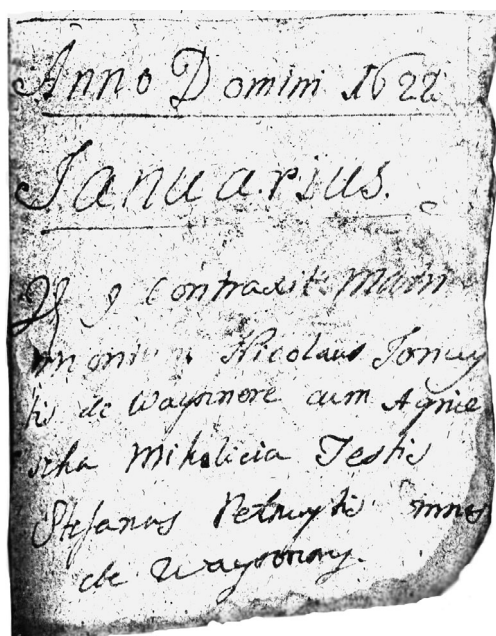 Anno Domini 1622
Ianuarius.
9 Contraxit Matri
monium Nicolaus
tis de Waysnore cum Agnie
scha Mikolicia Testis
Stefanus Petruytis omnes
de Waysnory.